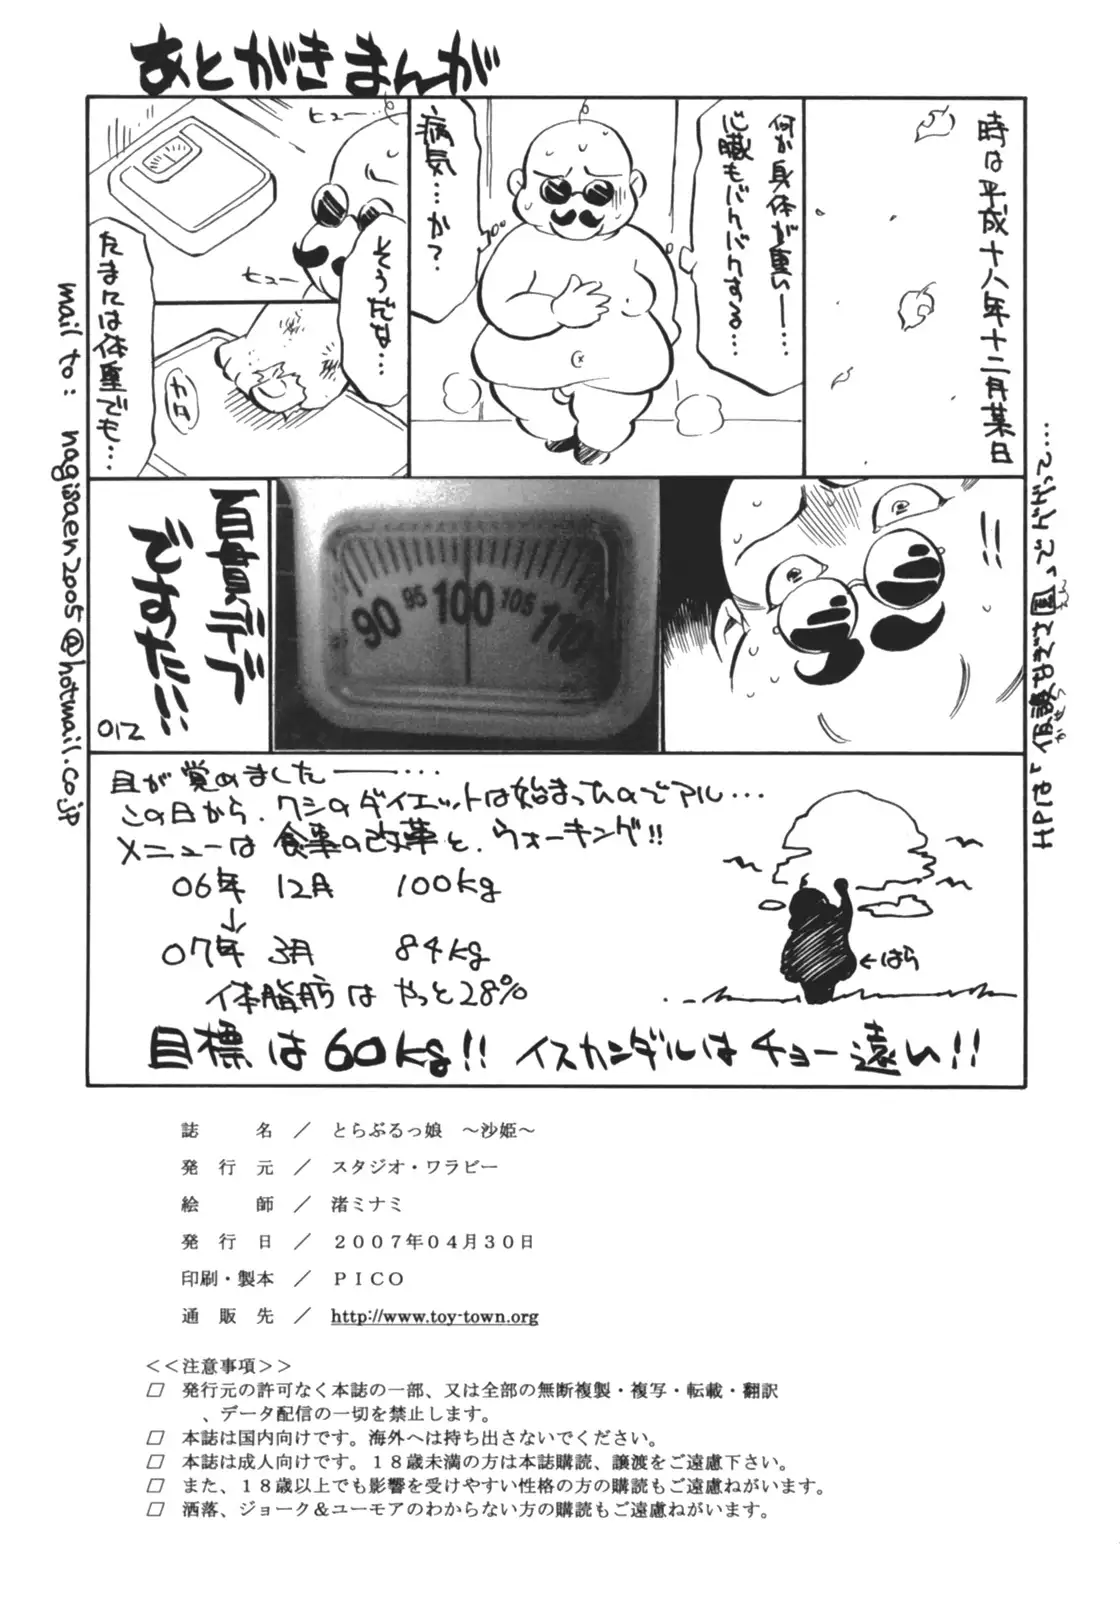 あとがきまんが
時は平成十八年十二月某日
何か身体が重い――…
心臓もバクバクする…
病気…か?
ヒュー…
ヒュー
そうだな…
たまには体重でも…
カタ
!!
90 95 100 105 110
百貫デブ
ですた!!
012
目が覚めました――…
この日から、ワシのダイエットは始まったのでアル…
メニューは食事の改革と、ウォーキング!!
06年 12月 100kg
↓
07年 3月 84kg
体脂肪はやっと28%
←はら
目標は60kg!! イスカンダルはチョー遠い!!
mail to: nagisaen2005@hotmail.co.jp
HPは、仮設なぎさ園っでググって…
かせつ
えん
誌名／とらぶるっ娘 ～沙姫～
発行元／スタジオ・ワラビー
絵師／渚ミナミ
発行日／２００７年０４月３０日
印刷・製本／ＰＩＣＯ
通販先／http://www.toy-town.org
＜＜注意事項＞＞
□ 発行元の許可なく本誌の一部、又は全部の無断複製・複写・転載・翻訳
、データ配信の一切を禁止します。
□ 本誌は国内向けです。海外へは持ち出さないでください。
□ 本誌は成人向けです。１８歳未満の方は本誌購読、譲渡をご遠慮下さい。
□ また、１８歳以上でも影響を受けやすい性格の方の購読もご遠慮ねがいます。
□ 洒落、ジョーク＆ユーモアのわからない方の購読もご遠慮ねがいます。